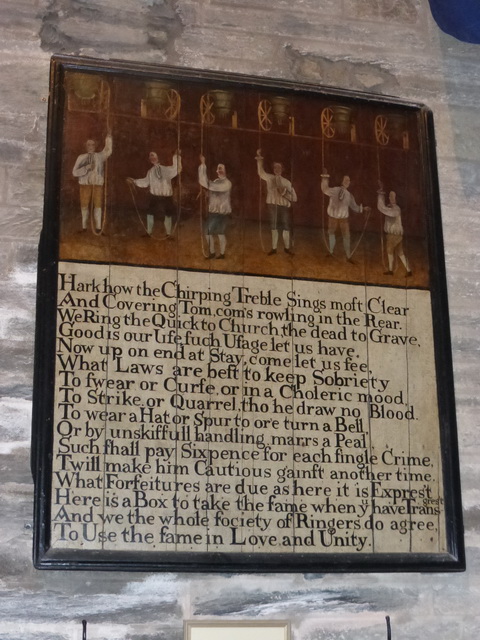 Hark how the Chirping Treble Sings moſt Clear
And Covering Tom com's rowling in the Rear.
We Ring the Quick to Church, the dead to Grave,
Good is our Uſe ſuch Uſage let us have.
Now up on end at Stay, come let us ſee,
What Laws are beſt to keep Sobriety
To ſwear or Curſe, or in a Choleric mood,
To Strike or Quarrel, tho he draw no Blood.
To wear a Hat or Spur to o're turn a Bell
Or by unskiffull handling, marrs a Peal
Such ſhall pay Sixpence for each ſingle Crime,
Twill make him Cautious gainſt another time.
What Forfeitures are due as here it is Expreſt
Here is a Box to take the ſame when y have Transgreſt
And we the whole ſociety of Ringers do agree,
To Use the ſame in Love and Unity.